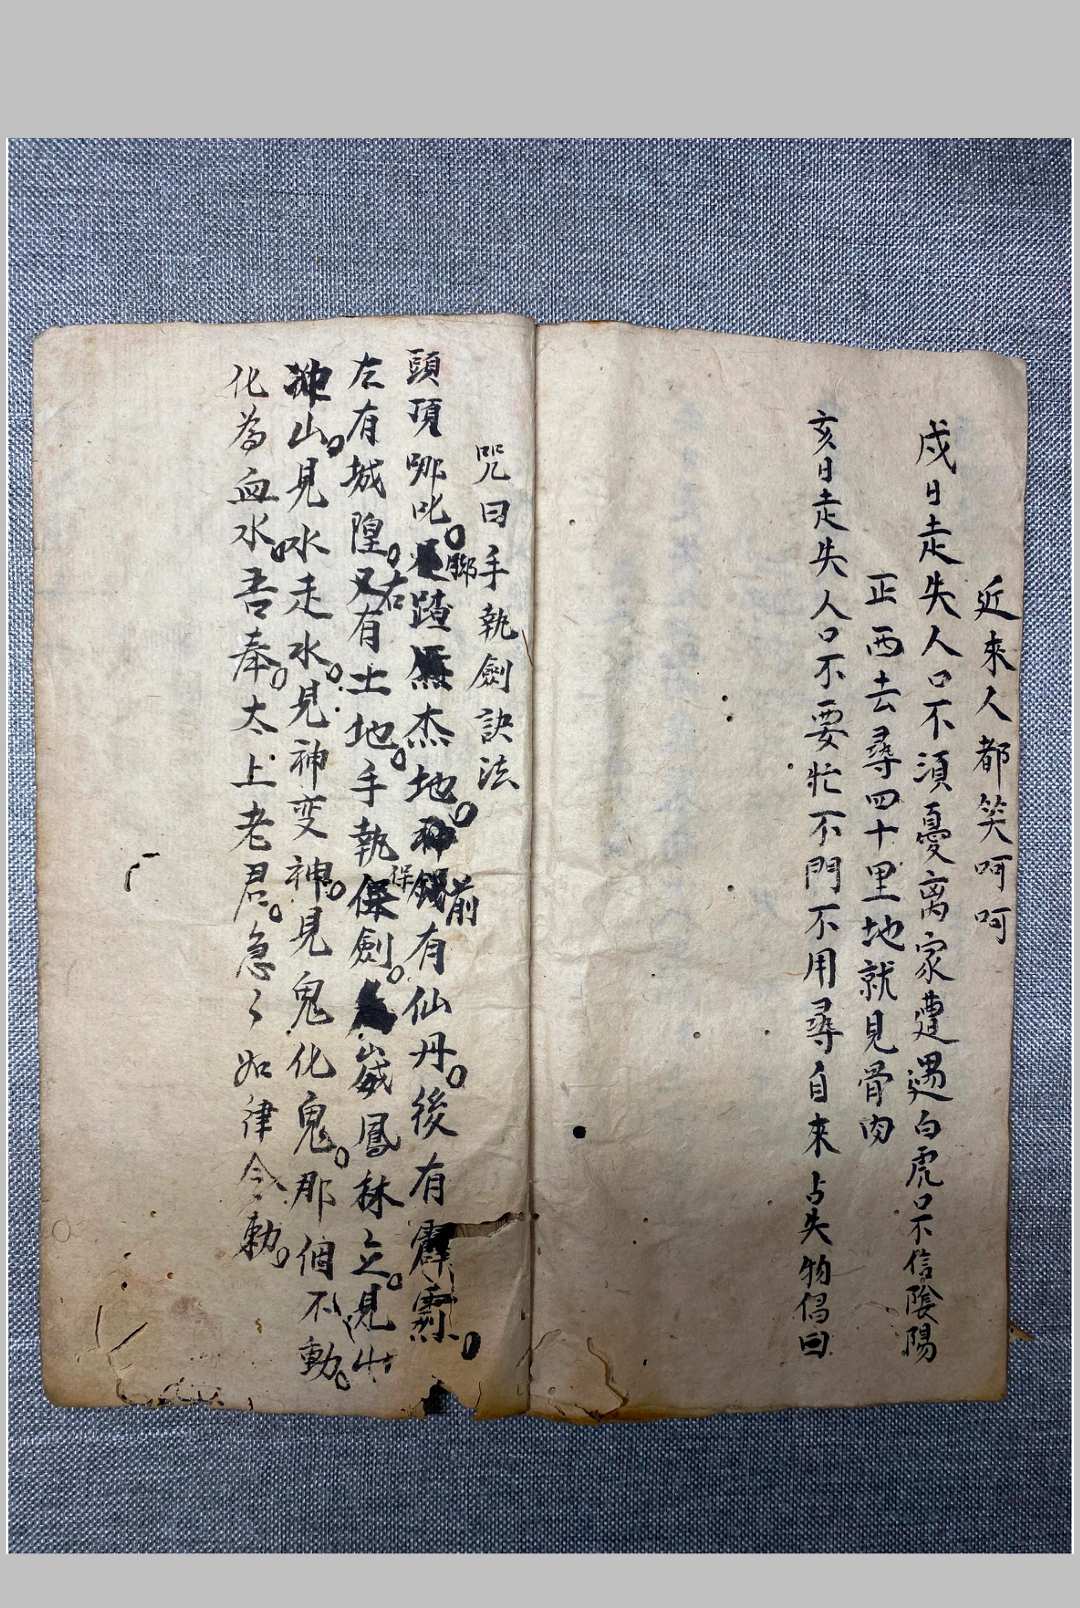 近來人都笑呵呵
戍日走失人口不須憂离家遭遇白虎口不信陰陽
正西去尋四十里地就見骨肉
亥日走失人口不要忙不門不用尋自來占失物倡回
咒曰手執劍訣法
頭頂哪吒腳踏杰地前有仙丹後有霹靂
左有城隍右有土地手執保劍崴鳳林立見山
冲山見水走水見神变神見鬼化鬼那個不動
化為血水吾奉太上老君急々如律令勅